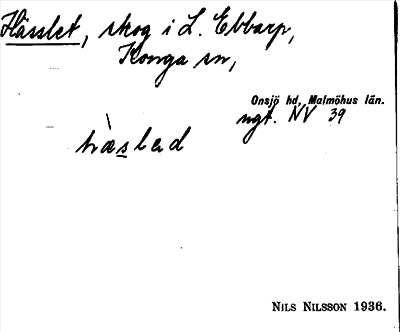 Hässlet, skog i L. Ebbarp,
Konga sn,
Onsjö hd, Malmöhus län.
ngt. NV 39
hàslad
NILS NILSSON 1936.